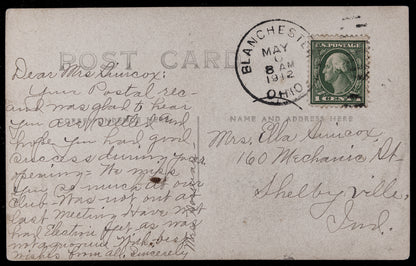 POST CARD
BLANCHESTER
MAY
8 AM
1912
OHIO
U.S. POSTAGE
1 CENT 1
Dear Mrs Simcox:
Your Postal rec-
and was glad to hear
you are settled and
hope you had good
success during your
opening - We miss
you so much at our
Club - Was not out at
last meeting. Have not
had Election yet as was
not a quorum. With best
wishes from all. Sincerely
NAME AND ADDRESS
Mrs. Ella Simcox,
160 Mechanic St
Shelbyville,
Ind.